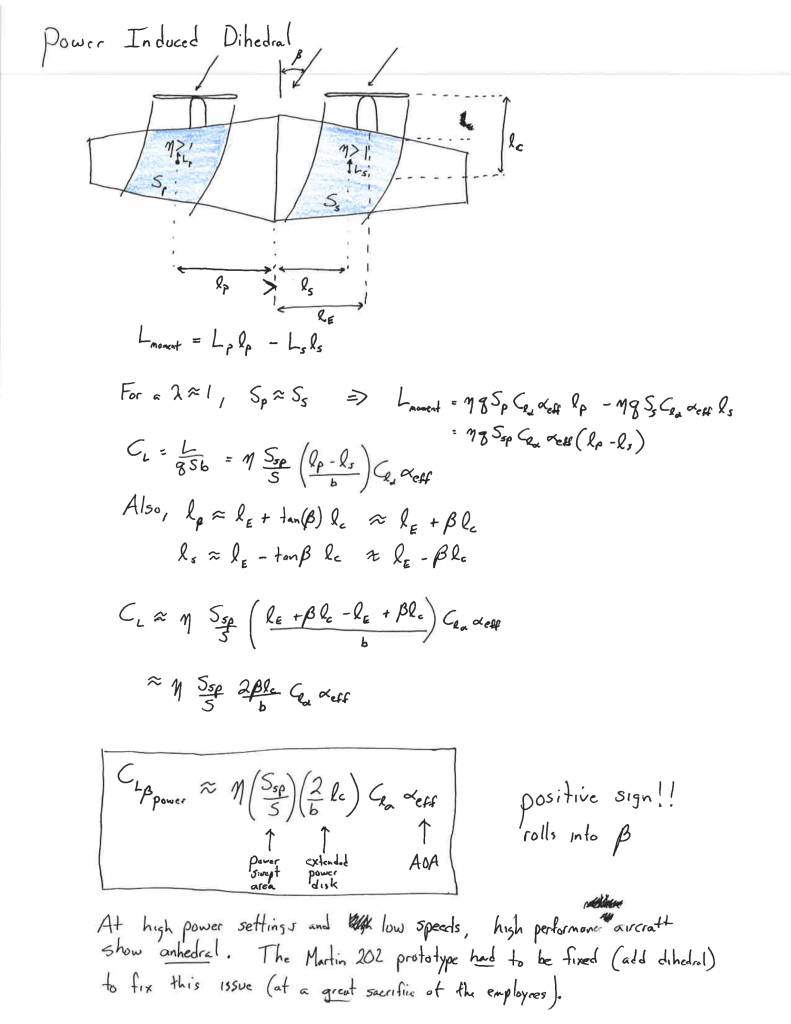 Power Induced Dihedral
β
η>1
Lp
Sp
η>1
Ls
Ss
lc
lp > ls
lE
Lmoment = Lp lp - Ls ls
For a λ≈1, Sp ≈ Ss => Lmoment = η q Sp Clα αeff lp - η q Ss Clα αeff ls
= η q Ssp Clα αeff (lp - ls)
CL = L/qSb = η Ssp/S (lp - ls / b) Clα αeff
Also, lp ≈ lE + tan(β) lc ≈ lE + β lc
ls ≈ lE - tanβ lc ≈ lE - β lc
CL ≈ η Ssp/S (lE + βlc - lE + βlc / b) Clα αeff
≈ η Ssp/S 2βlc/b Clα αeff
CLβpower ≈ η (Ssp/S) (2/b lc) Clα αeff
positive sign!!
rolls into β
↑ ↑ ↑
power swept area
extended power disk
AOA
At high power settings and low speeds, high performance aircraft
show anhedral. The Martin 202 prototype had to be fixed (add dihedral)
to fix this issue (at a great sacrifiie of the employees).